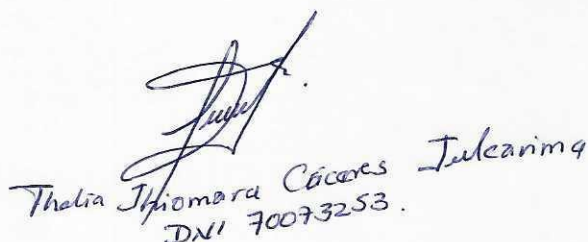 Thalia Jhiomara Cáceres Julcarima
DNI 70073253.